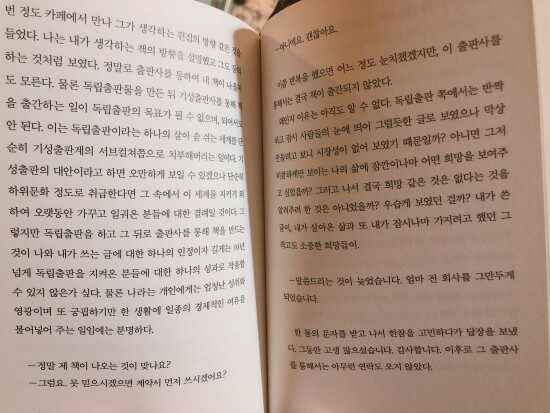 번 정도 카페에서 만나 그가 생각하는 편집의 방향 같은 것을
들었다. 나는 내가 생각하는 책의 방향을 설명했고 그도 동의
하는 것처럼 보였다. 정말로 출판사를 통하여 내 책이 나올지
도 모른다. 물론 독립출판물을 만든 뒤 기성출판사를 통해 책
을 출간하는 일이 독립출판의 목표가 될 수 없으며, 되어서도
안 된다. 이는 독립출판이라는 하나의 살아 숨 쉬는 세계를 단
순히 기성출판계의 서브컬쳐쯤으로 치부해버리는 일이다. 기
성출판의 대안이라고 하면 오만하게 보일 수 있겠으나 단순히
하위문화 정도로 취급한다면 그 속에서 이 세계를 지키기 위
하여 오랫동안 가꾸고 일궈온 분들에 대한 결례일 것이다. 그
렇지만 독립출판을 하고 그 뒤로 출판사를 통해 책을 만드는
것이 나와 내가 쓰는 글에 대한 하나의 인정이자 길게는 10년
넘게 독립출판을 지켜온 분들에 대한 하나의 성과로 작용할
수 있지 않은가 싶다. 물론 나라는 개인에게는 엄청난 성취와
영광이며 또 궁핍하기만 한 생활에 일종의 경제적인 여유를
불어넣어 주는 일임에는 분명하다.
—정말 제 책이 나오는 것이 맞나요?
—그럼요. 못 믿으시겠으면 계약서 먼저 쓰시겠어요?
—아니에요. 괜찮아요.
이쯤 반복을 했으면 어느 정도 눈치챘겠지만, 이 출판사를
통해서는 결국 책이 출간되지 않았다.
왜인지 이유는 아직도 알 수 없다. 독립출판 쪽에서는 반짝
하고 잠시 사람들의 눈에 띄어 그럴듯한 글로 보였으나 막상
만들려고 보니 시장성이 없어 보였기 때문일까? 아니면 그저
비참하게만 보이는 나의 삶에 잠깐이나마 어떤 희망을 보여주
고 싶었을까? 그러고 나서 결국 희망 같은 것은 없다는 것을
알려주려 한 것은 아니었을까? 우습게 보였던 걸까? 내가 쓴
글이, 내가 살아온 삶과 또 내가 잠시나마 가지려고 했던 그
작고도 소중한 희망들이.
—말씀드리는 것이 늦었습니다. 얼마 전 회사를 그만두게
되었습니다.
한 통의 문자를 받고 나서 한참을 고민하다가 답장을 보냈
다. 그동안 고생 많으셨습니다. 감사합니다. 이후로 그 출판사
를 통해서는 아무런 연락도 오지 않았다.